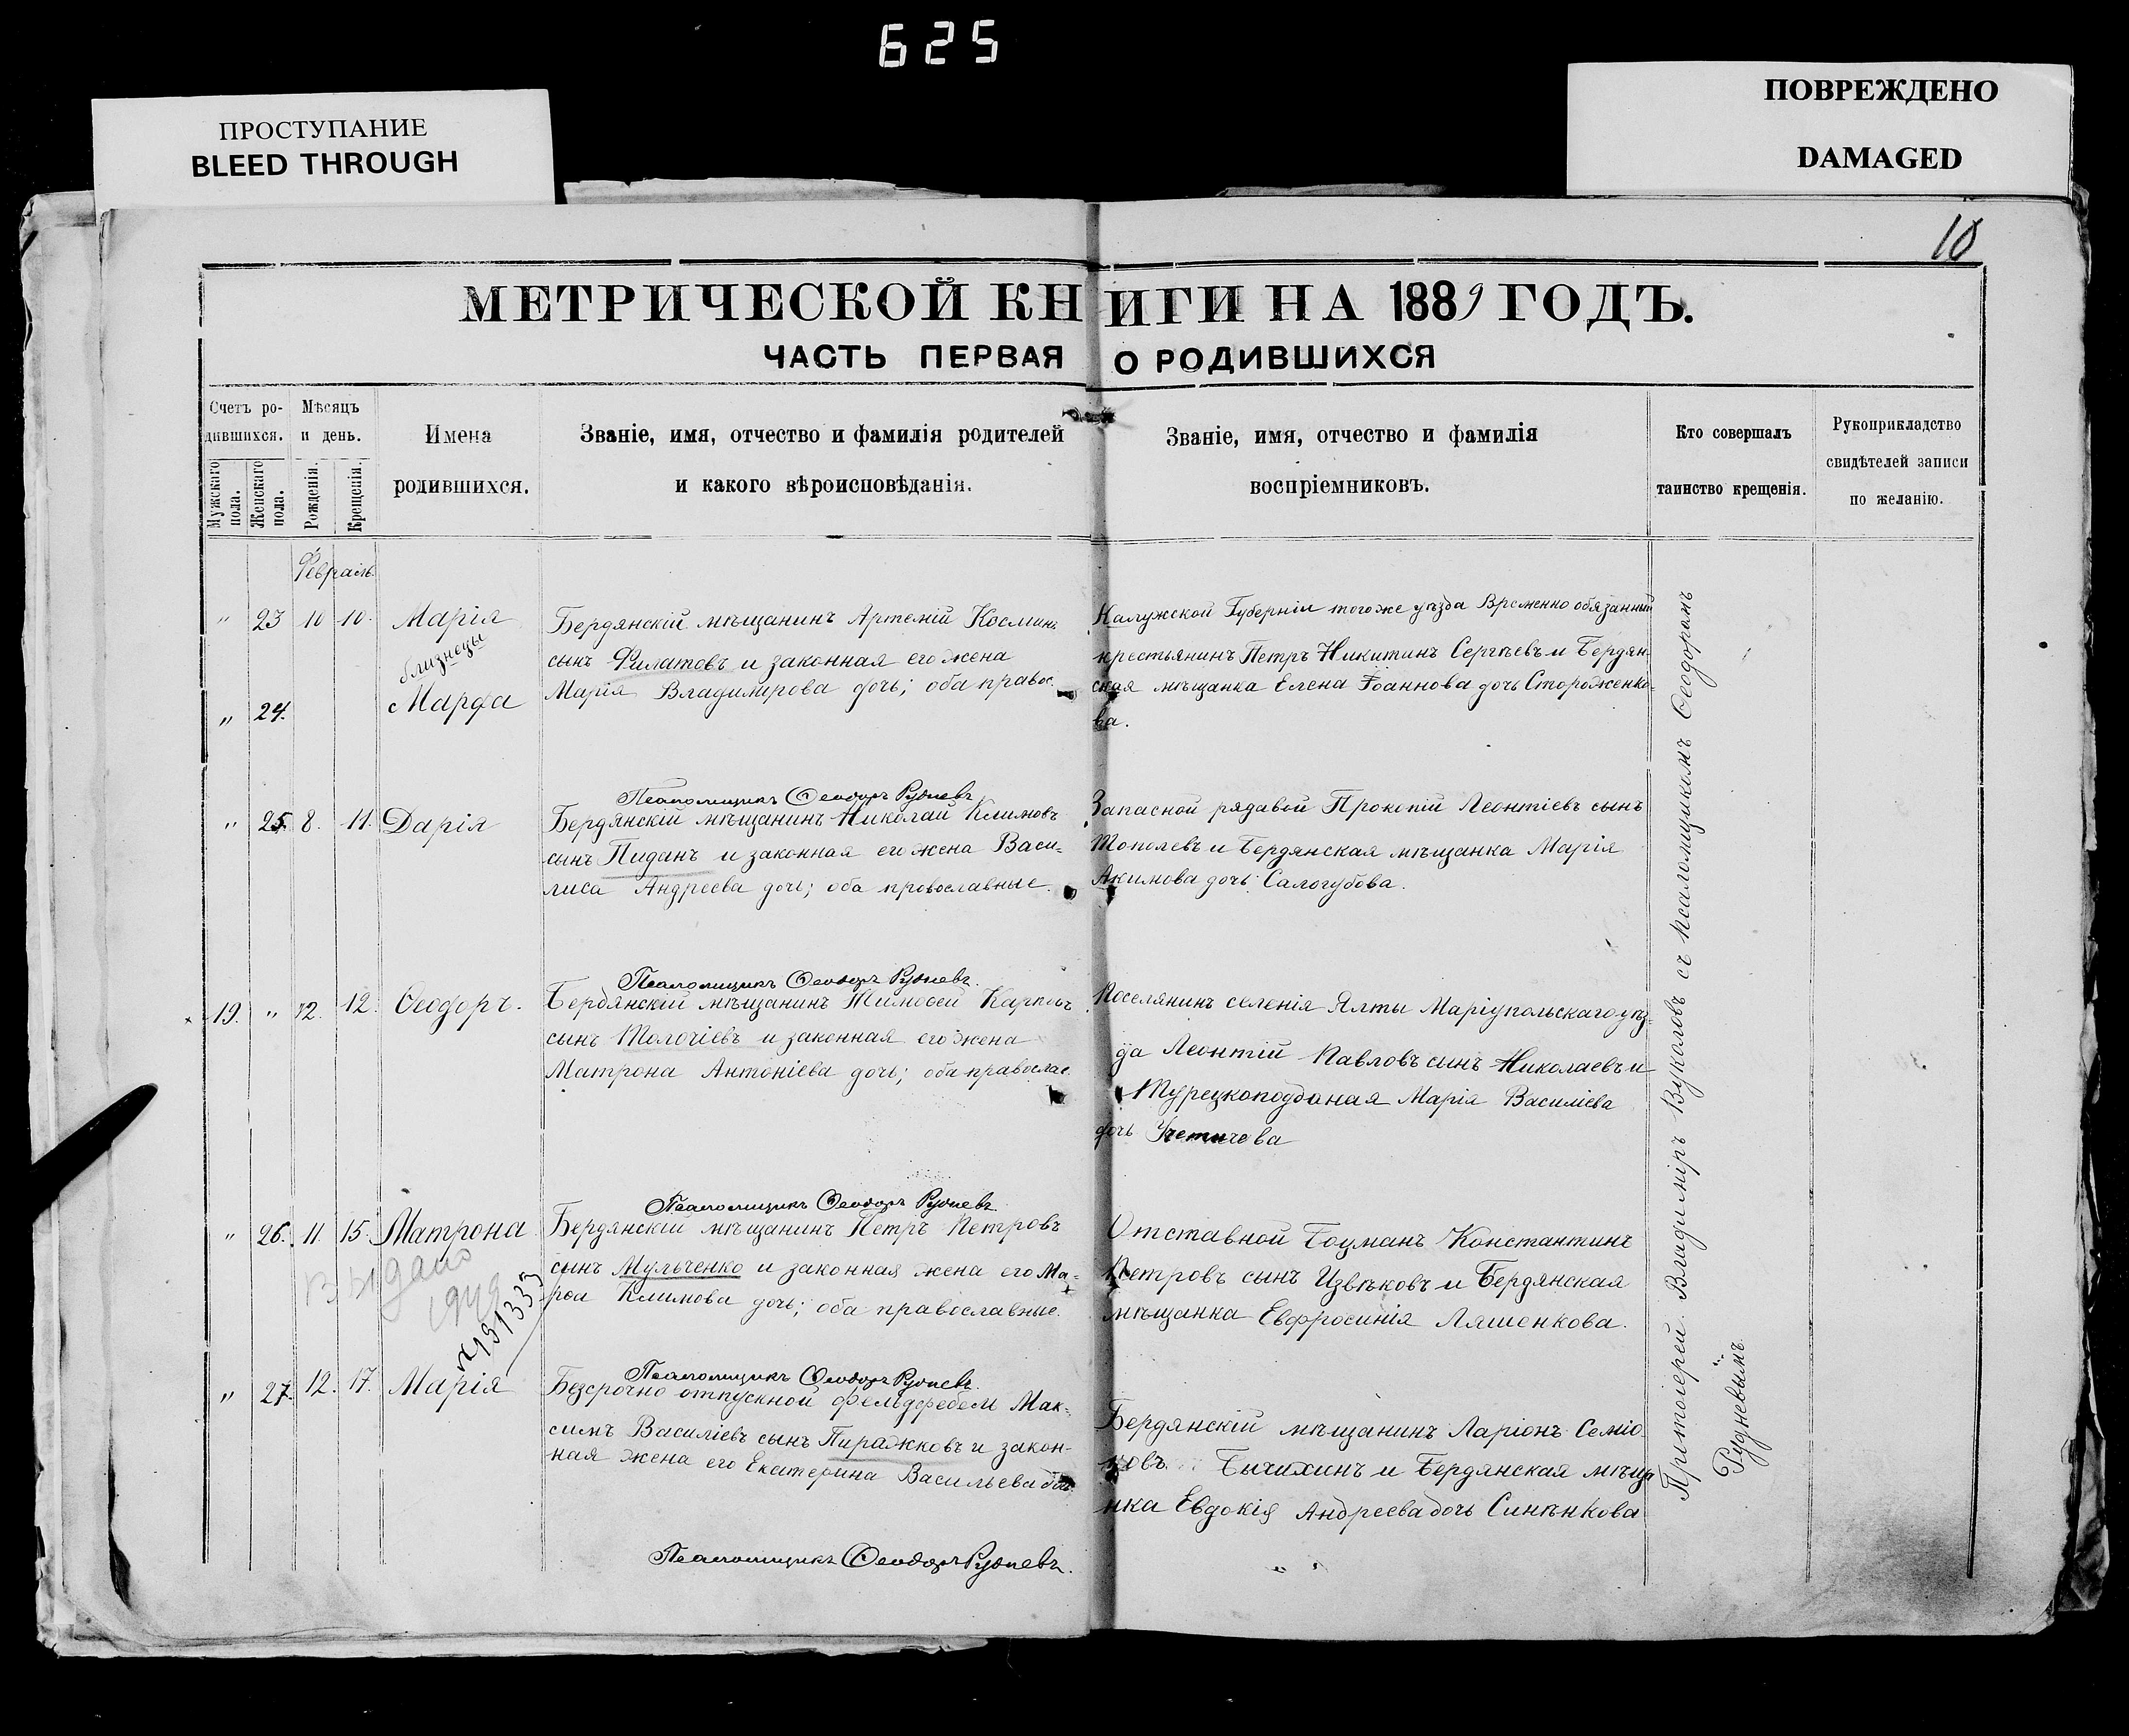 625
ПРОСТУПАНИЕ
BLEED THROUGH
ПОВРЕЖДЕНО
DAMAGED
10
МЕТРИЧЕСКОЙ КНИГИ НА 1889 ГОДЪ.
ЧАСТЬ ПЕРВАЯ О РОДИВШИХСЯ
Счетъ ро-
дившихся.
Мужскаго
пола.
Женскаго
пола.
Мѣсяцъ
и день.
Рожденія.
Крещенія.
Имена
родившихся.
Званіе, имя, отчество и фамилія родителей
и какого вѣроисповѣданія.
Званіе, имя, отчество и фамилія
воспріемниковъ.
Кто совершалъ
таинство крещенія.
Рукоприкладство
свидѣтелей записи
по желанію.
Февраль
" 23 10 10. Марія
близнецы
" 24. Марфа
Бердянскій мѣщанинъ Артемій Косминъ
сынъ Филатовъ и законная его жена
Марія Владимірова дочь; оба правос.
Калужской Губерніи тогоже уѣзда Временно обязанный
крестьянинъ Петръ Никитинъ Сергѣевъ и Бердян-
ская мѣщанка Елена Іоаннова дочь Стороженко-
ва.
Псаломщикъ Ѳеодоръ Рудневъ
" 25. 8. 11. Дарія
Бердянскій мѣщанинъ Николай Климовъ
сынъ Пиданъ и законная его жена Васи-
лиса Андреева дочь; оба провославные.
Запасной рядавой Прокопій Леонтіевъ сынъ
Тополевъ и Бердянская мѣщанка Марія
Акимова дочь Салогубова.
Псаломщикъ Ѳеодоръ Рудневъ.
19. " 12. 12. Ѳеодоръ.
Бердянскій мѣщанинъ Тимоѳей Карповъ
сынъ Толочіевъ и законная его жена
Матрона Антоніева дочь; оба правослас.
Поселянинъ селенія Ялты Маріупольскаго уѣз-
да Леонтій Павловъ сынъ Николаевъ и
Турецкоподданая Марія Василіева
дочь
Псаломщикъ Ѳеодоръ Рудневъ
" 26. 11. 15. Матрона
Выдано
№ 191333
Бердянскій мѣщанинъ Петръ Петровъ
сынъ Мульченко и законная жена его Ма-
рѳа Климова дочь; оба православные.
Отставной Боцманъ Константинъ
Петровъ сынъ Извѣковъ и Бердянская
мѣщанка Евфросинія Ляшенкова.
Псаломщикъ Ѳеодоръ Рудневъ.
" 27. 12. 17. Марія
Безсрочно отпускной фельдфебель Мак-
симъ Василіевъ сынъ Пиражковъ и закон-
ная жена его Екатерина Васильева дочь
Бердянскій мѣщанинъ Ларіонъ Семіо
новъ Бычихинъ и Бердянская мѣща
нка Евдокія Андреева дочь Синѣнкова
Псаломщикъ Ѳеодоръ Рудневъ.
Протоіерей Владиміръ Вуколовъ съ псаломщикомъ Ѳеодоромъ
Рудневымъ.